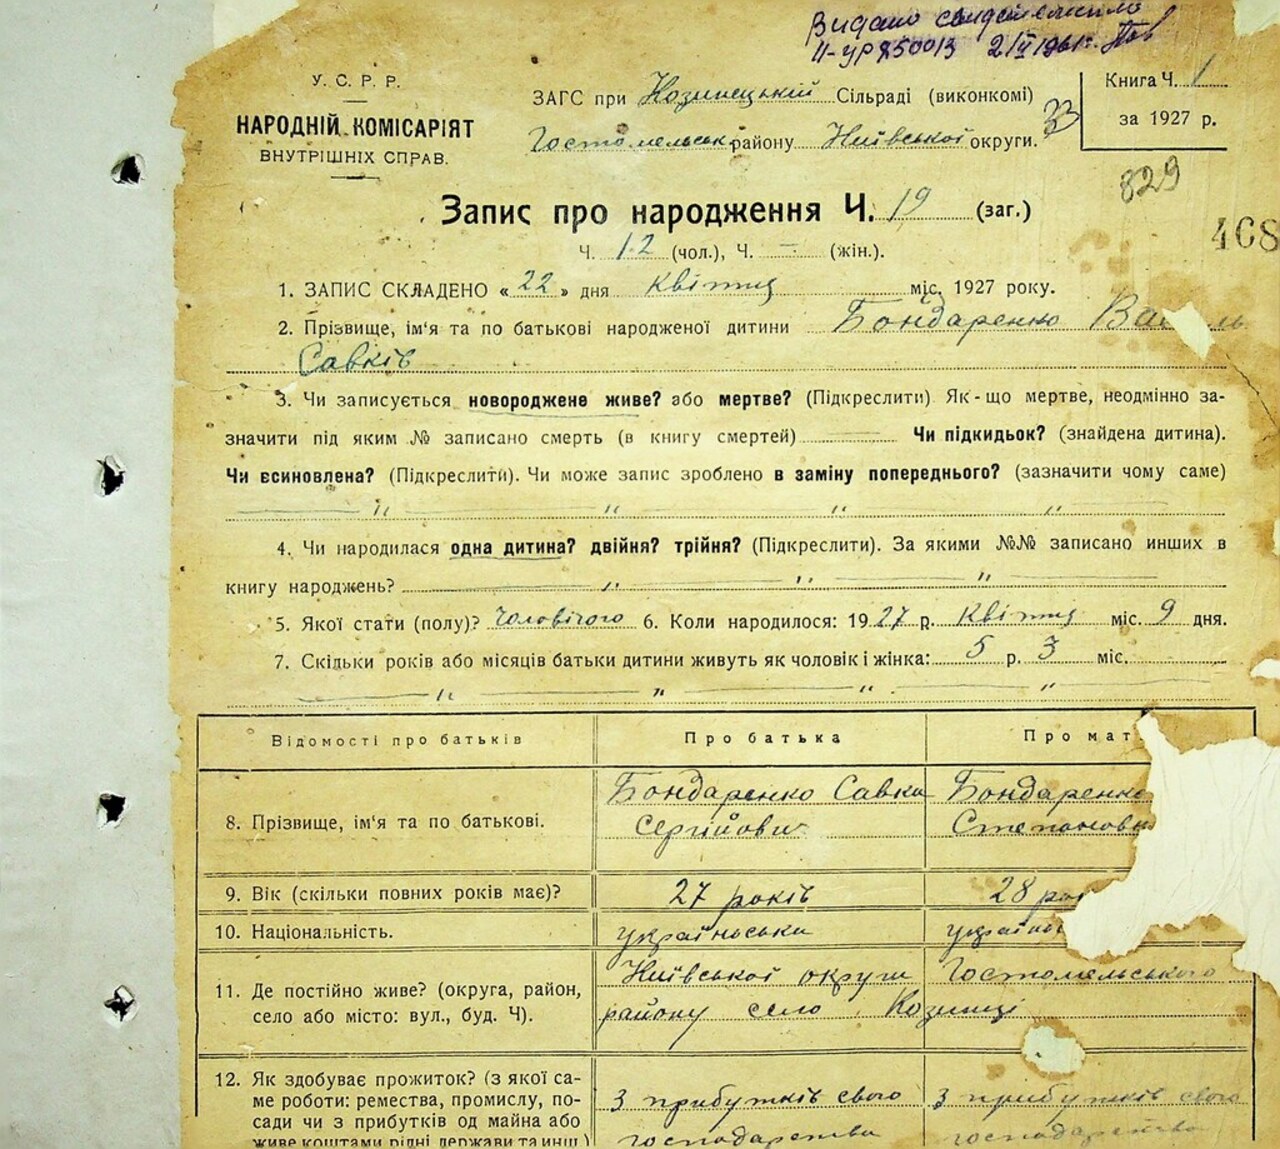 Видано свидетельство
II-УР 850013 2/VI 1961г.
У. С. Р. Р.
НАРОДНІЙ КОМІСАРІЯТ
ВНУТРІШНІХ СПРАВ.
ЗАГС при Козинецькій Сільраді (виконкомі)
Гостомельськ. району Київської округи.
33
Книга Ч. 1
за 1927 р.
829
468
Запис про народження Ч. 19 (заг.)
Ч. 12 (чол.), Ч. — (жін.).
1. ЗАПИС СКЛАДЕНО « 22 » дня квітня міс. 1927 року.
2. Прізвище, ім'я та по батькові народженої дитини Бондаренко
Савків
3. Чи записується новороджене живе? або мертве? (Підкреслити) Як-що мертве, неодмінно за-
значити під яким № записано смерть (в книгу смертей) — Чи підкидьок? (знайдена дитина).
Чи всиновлена? (Підкреслити). Чи може запис зроблено в заміну попереднього? (зазначити чому саме)
— " — " — " — " —
4. Чи народилася одна дитина? двійня? трійня? (Підкреслити). За якими №№ записано инших в
книгу народжень? — " — " — " —
5. Якої стати (полу)? Чоловічого 6. Коли народилося: 1927 р. Квітня міс. 9 дня.
7. Скільки років або місяців батьки дитини живуть як чоловік і жінка: 5 р. 3 міс.
— " — " — " — " —
Відомості про батьків Про батька Про мат
8. Прізвище, ім'я та по батькові. Бондаренко Савка Бондаренко
Сергійович Степановн
9. Вік (скільки повних років має)? 27 років 28 рок
10. Національність. українська україн
11. Де постійно живе? (округа, район, Київської округи Гостомельського
село або місто: вул., буд. Ч). району село Козинці
12. Як здобуває прожиток? (з якої са- З прибутків свого З прибутків свого
ме роботи: ремества, промислу, по- господарства господарства
сади чи з прибутків од майна або
живе коштами рідні держави та инш.)